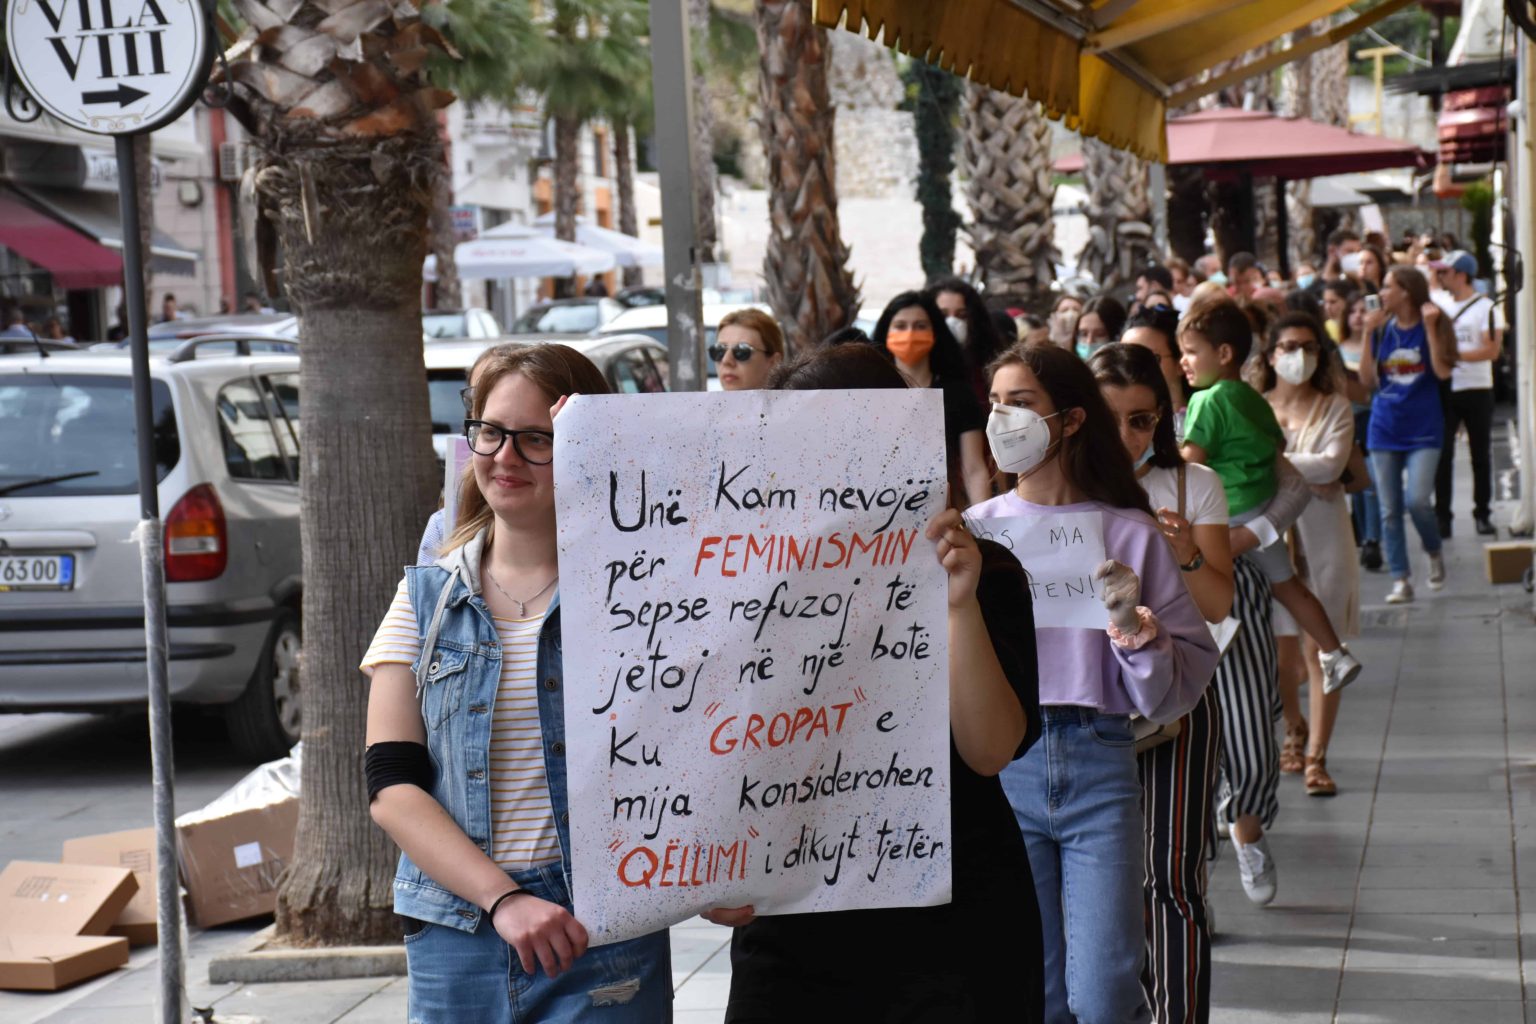 VILA
VIII
763 00
Unë Kam nevojë
për FEMINISMIN
sepse refuzoj të
jetoj në një botë
ku "GROPAT" e
mija konsiderohen
"QËLLIMI" i dikujt tjetër
MA